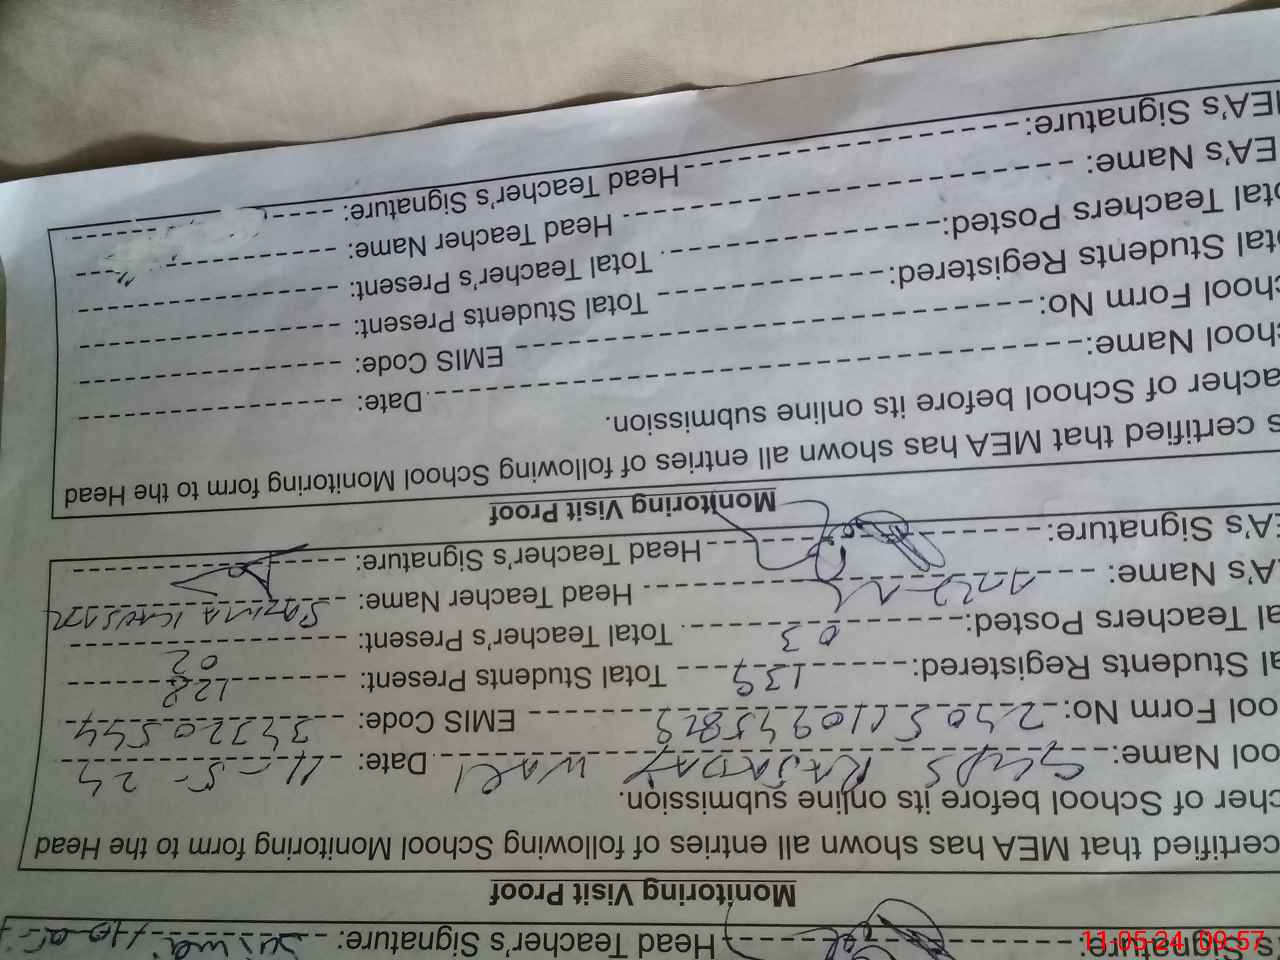 's Signature: Head Teacher's Signature:
Monitoring Visit Proof
certified that MEA has shown all entries of following School Monitoring form to the Head
cher of School before its online submission.
ool Name: GGPS WALI Date: 11-5-24
ool Form No: EMIS Code: 34320544
al Students Registered: 139 Total Students Present: 128
al Teachers Posted: 03 Total Teacher's Present: 02
A's Name: Head Teacher Name:
A's Signature: Head Teacher's Signature:
Monitoring Visit Proof
s certified that MEA has shown all entries of following School Monitoring form to the Head
acher of School before its online submission.
chool Name: Date:
chool Form No: EMIS Code:
otal Students Registered: Total Students Present:
otal Teachers Posted: Total Teacher's Present:
EA's Name: Head Teacher Name:
MEA's Signature: Head Teacher's Signature:
11-05-24 09:57